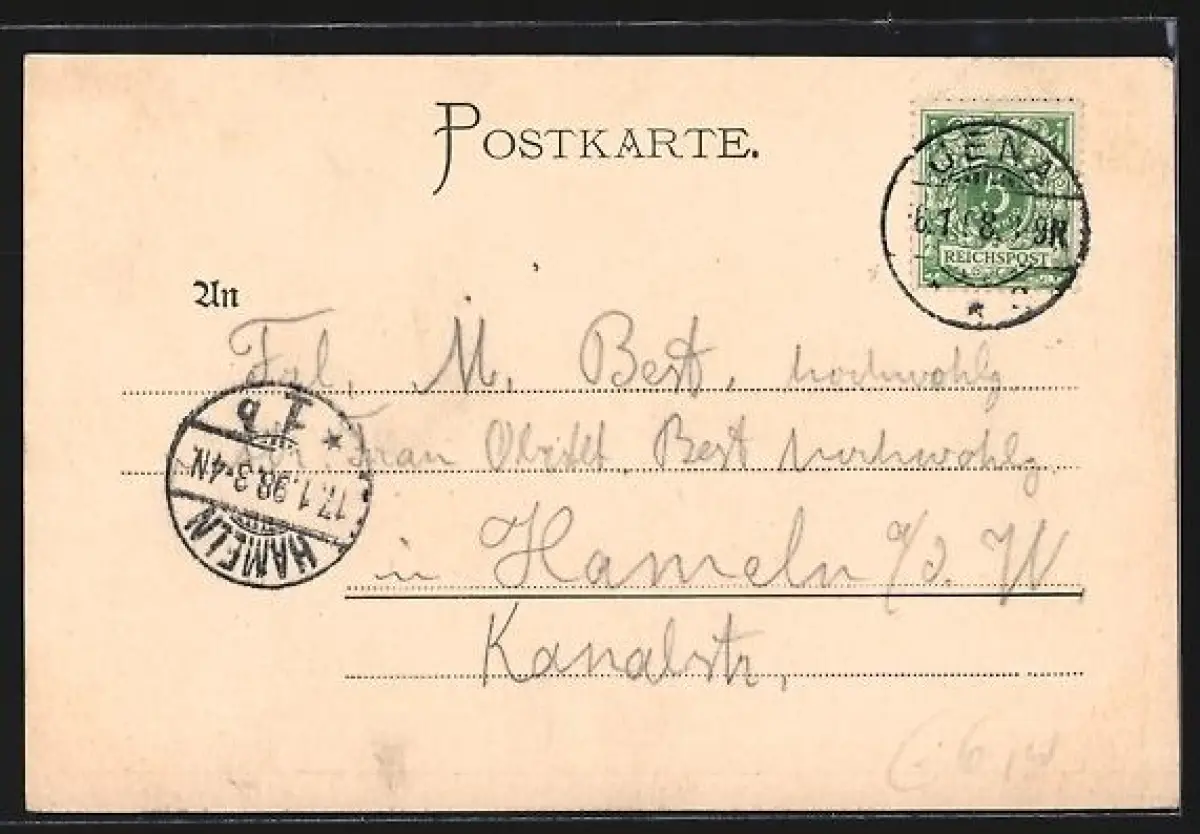 POSTKARTE.
JENA
5
6.1.98. 9N
REICHSPOST
An
Frl. M. Best, hochwohlg.
Frau Best hochwohlg.
in Hameln a/d. W
Kanalstr,
b I
17.1.98.3-4N.
HAMELN